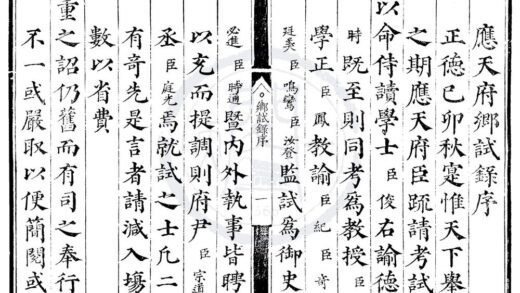 應天府鄉試錄序
正德己卯秋寔惟天下舉
之期應天府臣疏請考試
以命侍讀學士臣俊右諭德
時既至則同考爲教授臣
學正臣鳳教諭臣紀臣奇
臣鳴鸞臣汝登監試爲御史
鄉試錄序
一
必進臣暨内外執事皆聘
以充而提調則府尹臣宗道
丞臣庭光焉就試之士凡二
有奇先是言者請減入塲
數以省費
重之詔仍舊而有司之奉行
不一或嚴取以便簡閱或